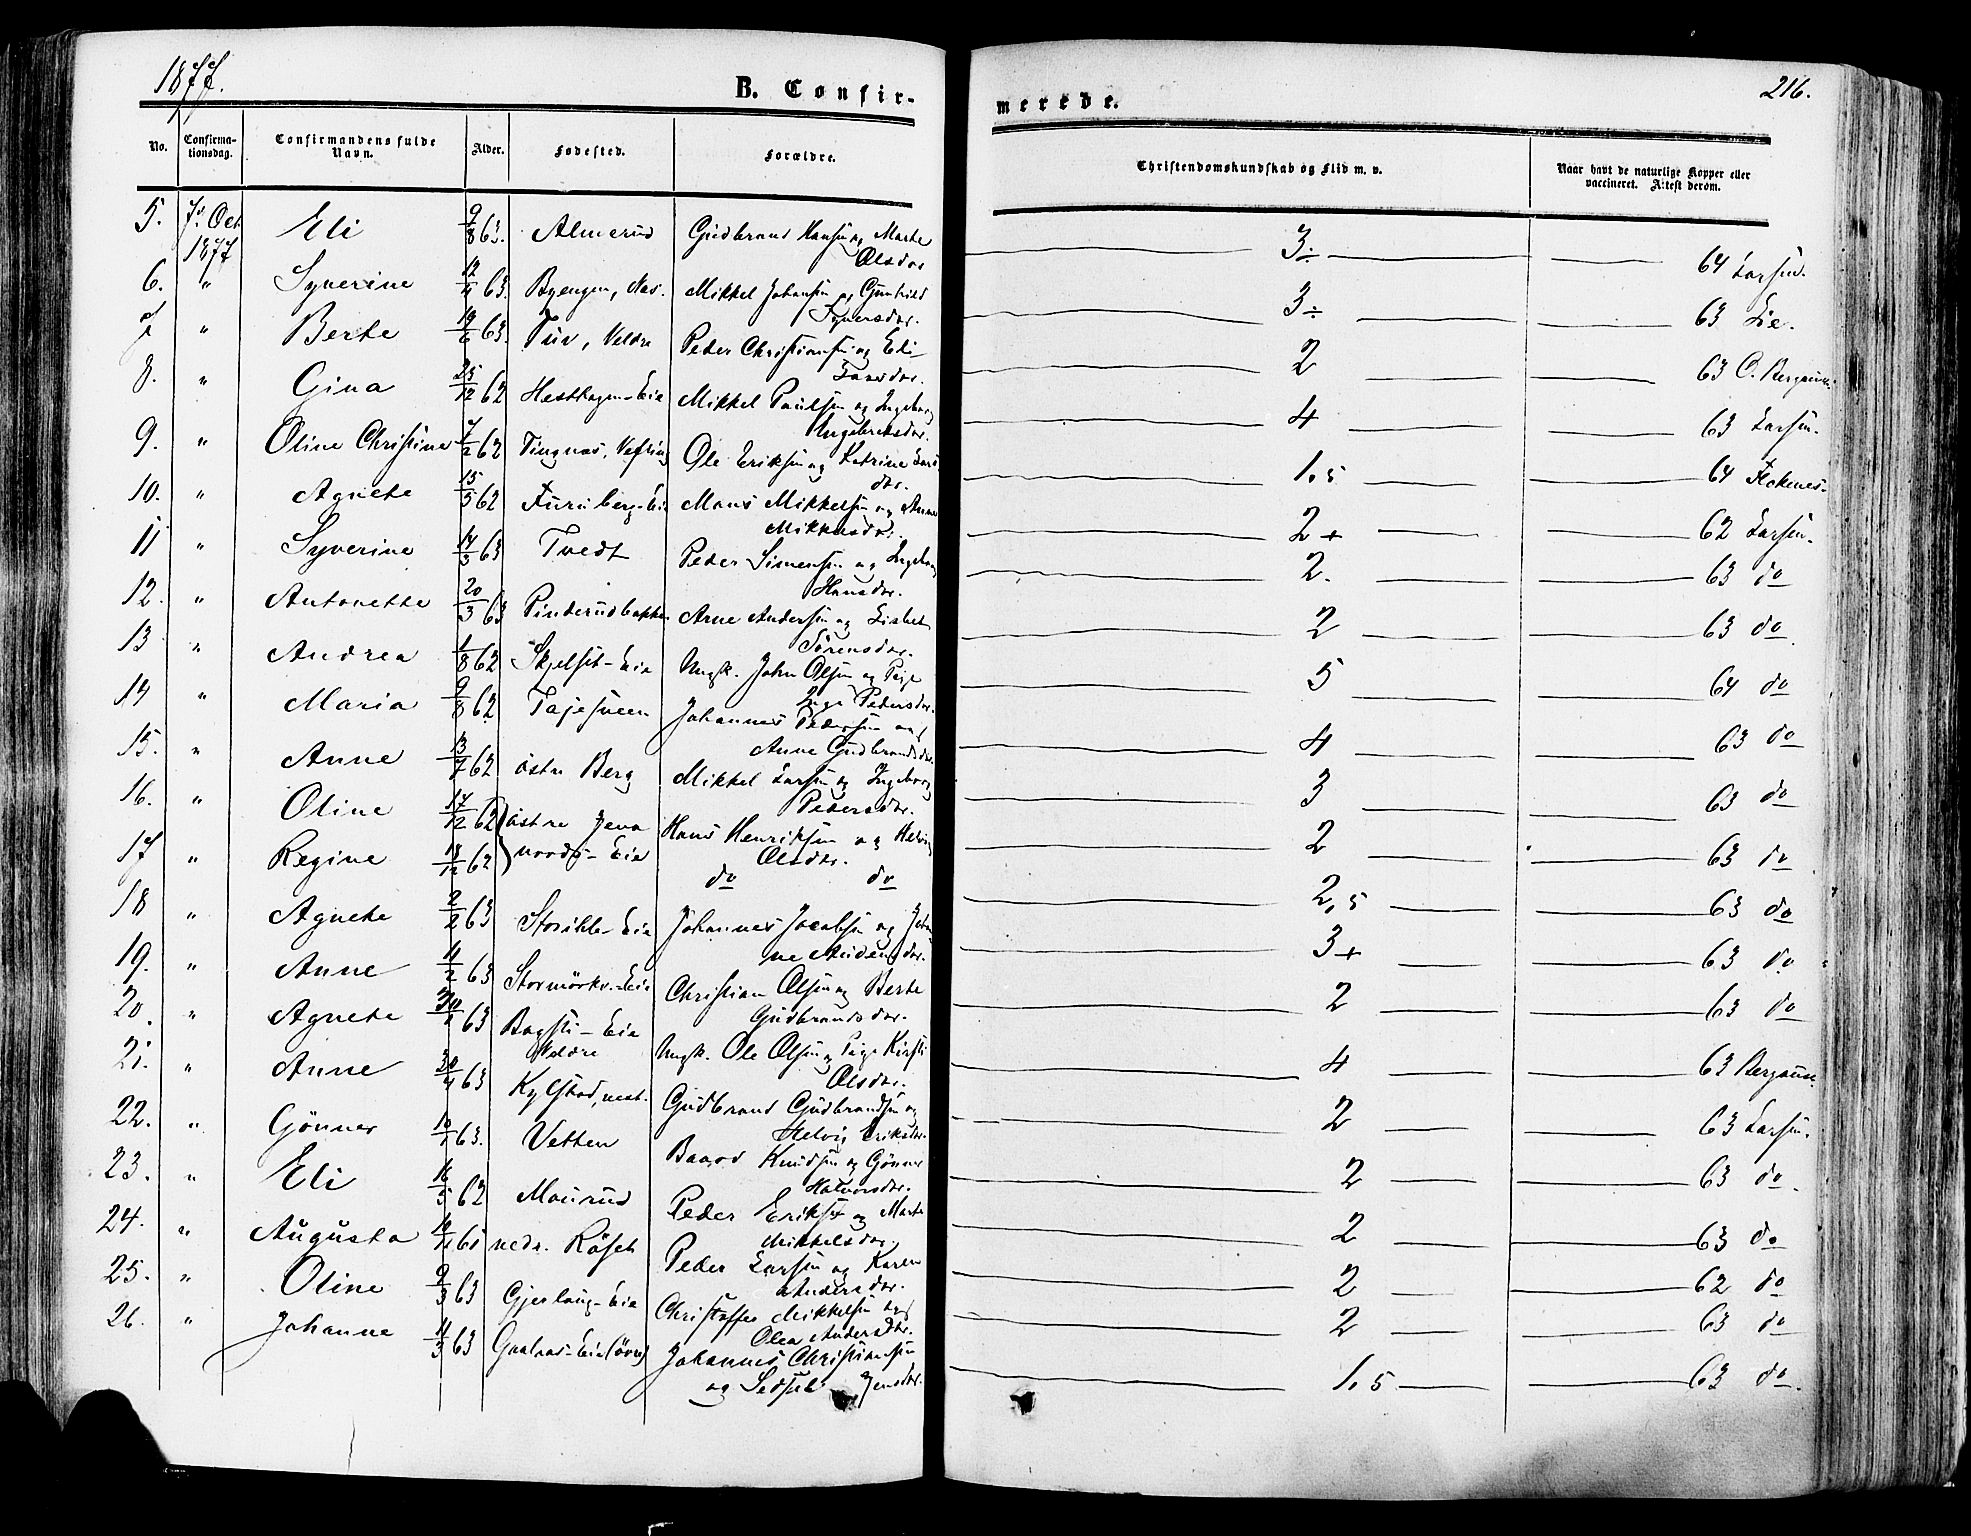 1877.
B. Confir-
merede.
216.
No.
Confirma-
tionsdag.
Confirmandens fulde
Navn.
Alder.
Fødested.
Forældre.
Christendomskundskab og Flid m. v.
Naar havt de naturlige Kopper eller
vaccineret. Attest derom.
5. 7d. Oct. 1877 Eli 9/8 63. Almerud Gudbrand Hansen og Marte Olsdar 3÷ 64 Larsen.
6. " Syverine 63. Byengen, Nas. Mikkel Johansen og Gunhild Syversdar. 3÷ 63 Lie.
7 " Berte 19/6 63. Tuv, Veldre Peder Christiansen og Eli 2 63 C. Bergsun
8. " Gina 25/12 62 Hesthagen-Eie Mikkel Paulsen og Ingeborg Ingebretsdar. 4 63 Larsen.
9. " Oline Christine 7/2 62 Tingnas, Ole Eriksen og Katrine Lars dar. 1,5 64
10. " Agnete 15/5 62 Furuberg-Eie Mons Mikkelsen og Anne Mikkelsdar. 2+ 62 Larsen.
11 " Syverine 14/3 63 Tvedt Peder Simensen og Ingeborg Hansdar. 2. 63 do
12. " Antonette 20/3 63 Pinderudbakken Arne Andersen og Lisbet Sørensdar. 2 63 do
13 " Andrea 1/8 62 Skjelset-Eie Ungk. John Olsen og Pige Inge Pedersdar. 5 64 do
14 " Maria 9/8 62 Tajesveen Johannes Pedersen og Anne Gudbrandsdar. 4 63 do
15. " Anne 13/7 62 østre Berg Mikkel Larsen og Ingeborg Pedersdar. 3 63 do
16. " Oline 17/12 62 østre Hans Henriksen og Helvig Olsdar. 2 63 do
17 " Regine 18/12 62 Eie do do 2,5 63 do
18 " Agnete 2/2 63 Eie Johannes Jacobsen og 3+ 63 do
19. " Anne 11/2 63 Stormörkv.-Eie Christian Olsen og Berte Gudbrandsdar. 2 63 do
20. " Agnete 63 Bagsti-Eie Veldre Ungk. Ole Olsen og Pige Kirsti Olsdar. 4 63 Bergsun
21. " Anne 30/4 63 Kylstad, nest. Gudbrand Gudbrandsen og Helvig Eriksdar. 2 63 Larsen.
22. " Gönner 63. Vetten Baard Knudsen og Gönner Halvorsdar. 2 63 do
23. " Eli 16/5 62 Maurud Peder Eriksen og Marte Mikkelsdar. 2 63 do
24. " Augusta nedr. Röset Peder Larsen og Karen Andersdar. 2 62 do
25. " Oline 9/3 63 Gjerlaug-Eie Christoffer Mikkelsen og Olea Andersdar. 2 63 do
26. " Johanne 11/3 63 Johannes Christiansen og Jensdar. 1,5 63 do.